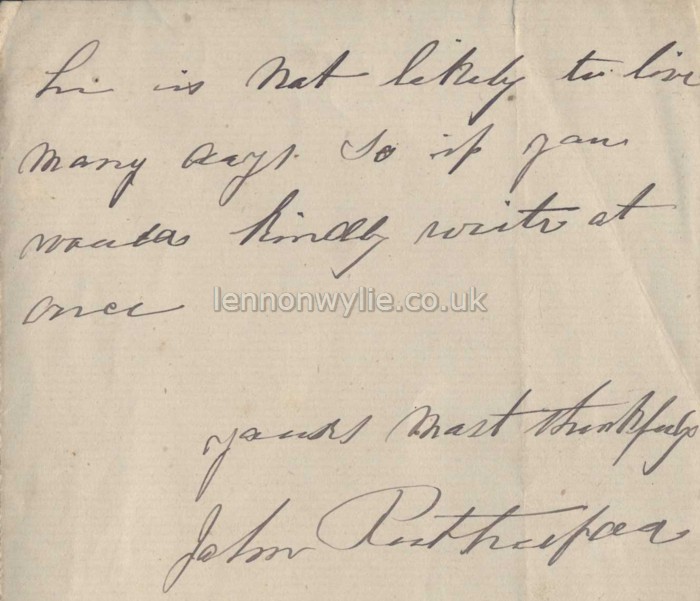 he is not likely to live
many days. So if you
would kindly write at
once
lennonwylie.co.uk
yours most thankfully
John Rutherford